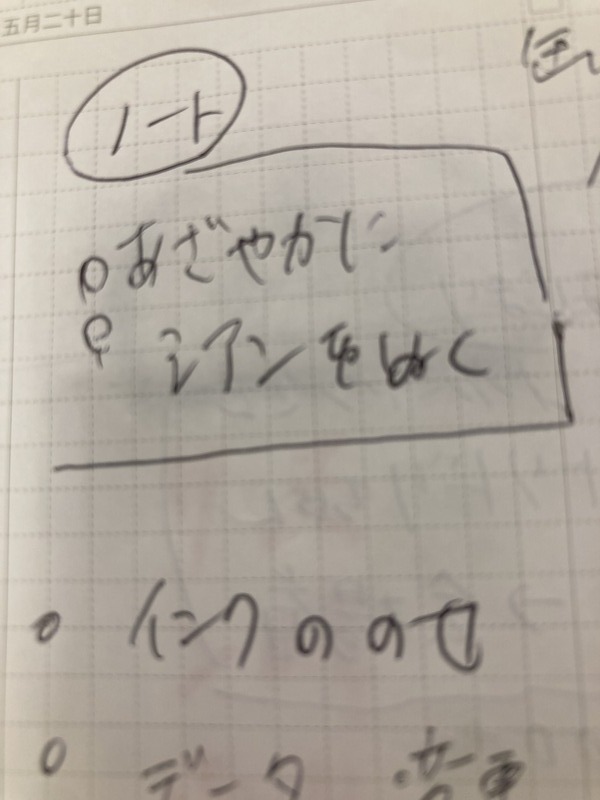 五月二十日
ノート
あざやかに
シアンをぬく
インクののせ
データ 変